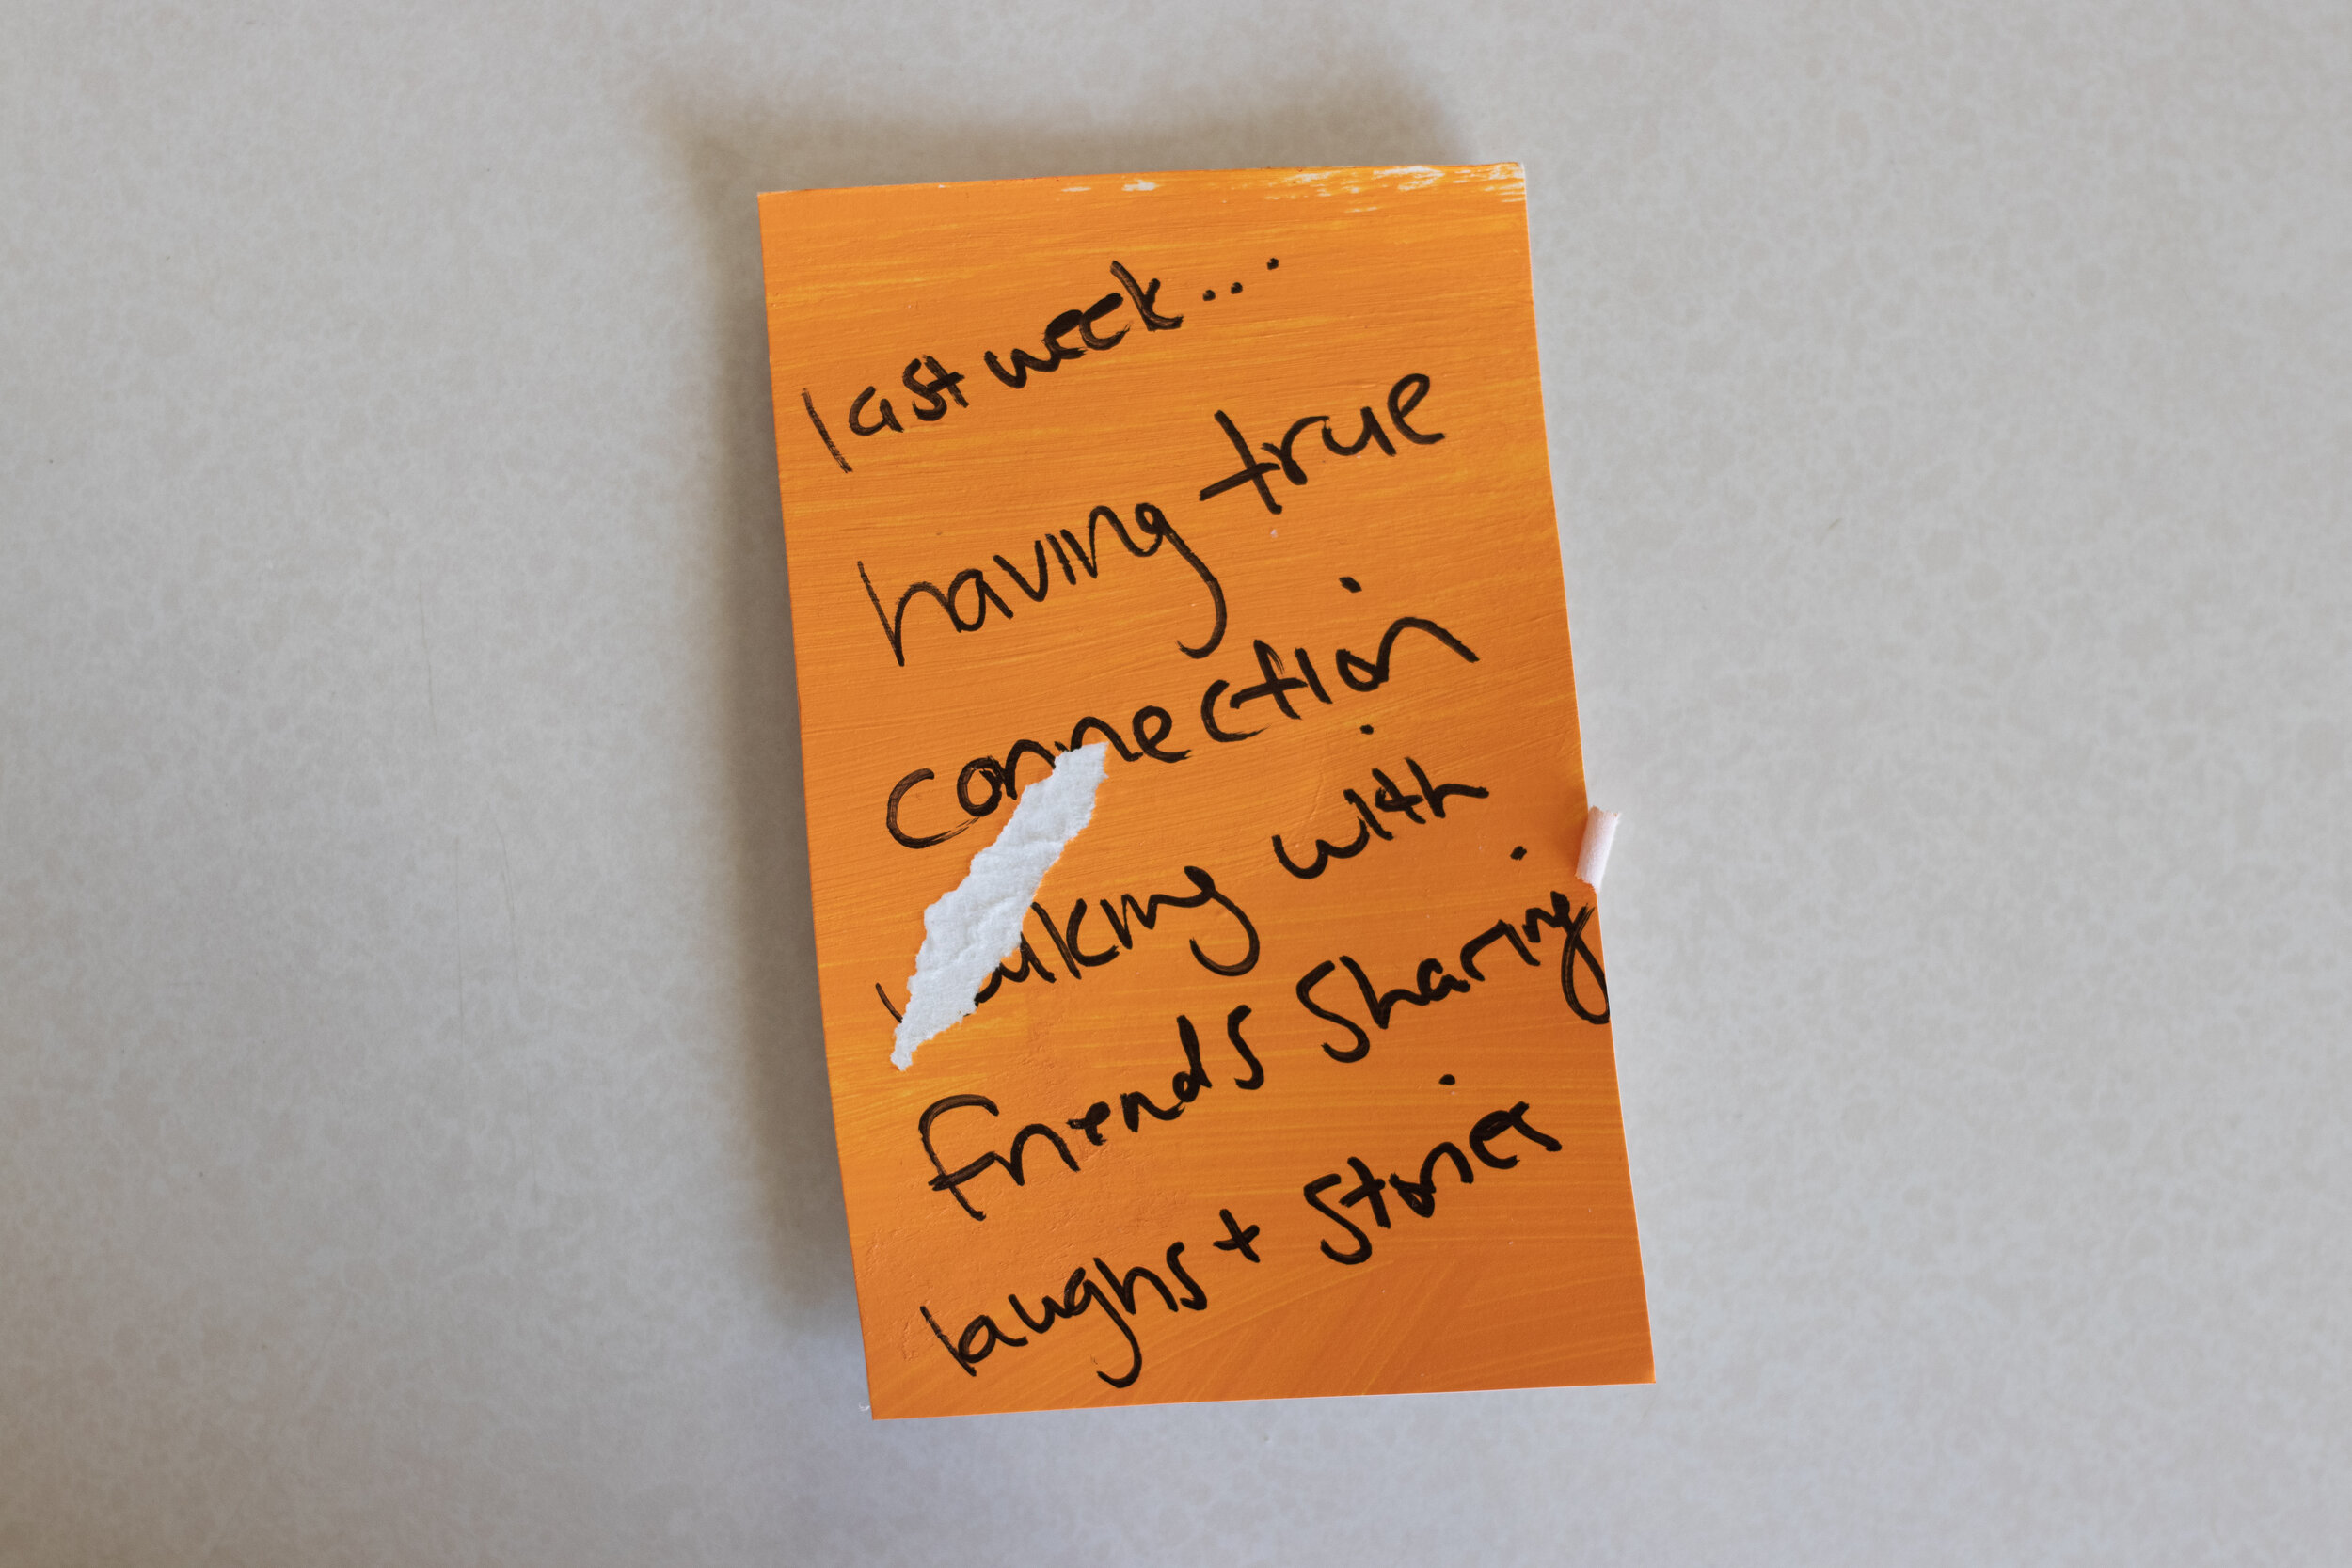 last week...
having true
connection
with
friends sharing
laughs + stories